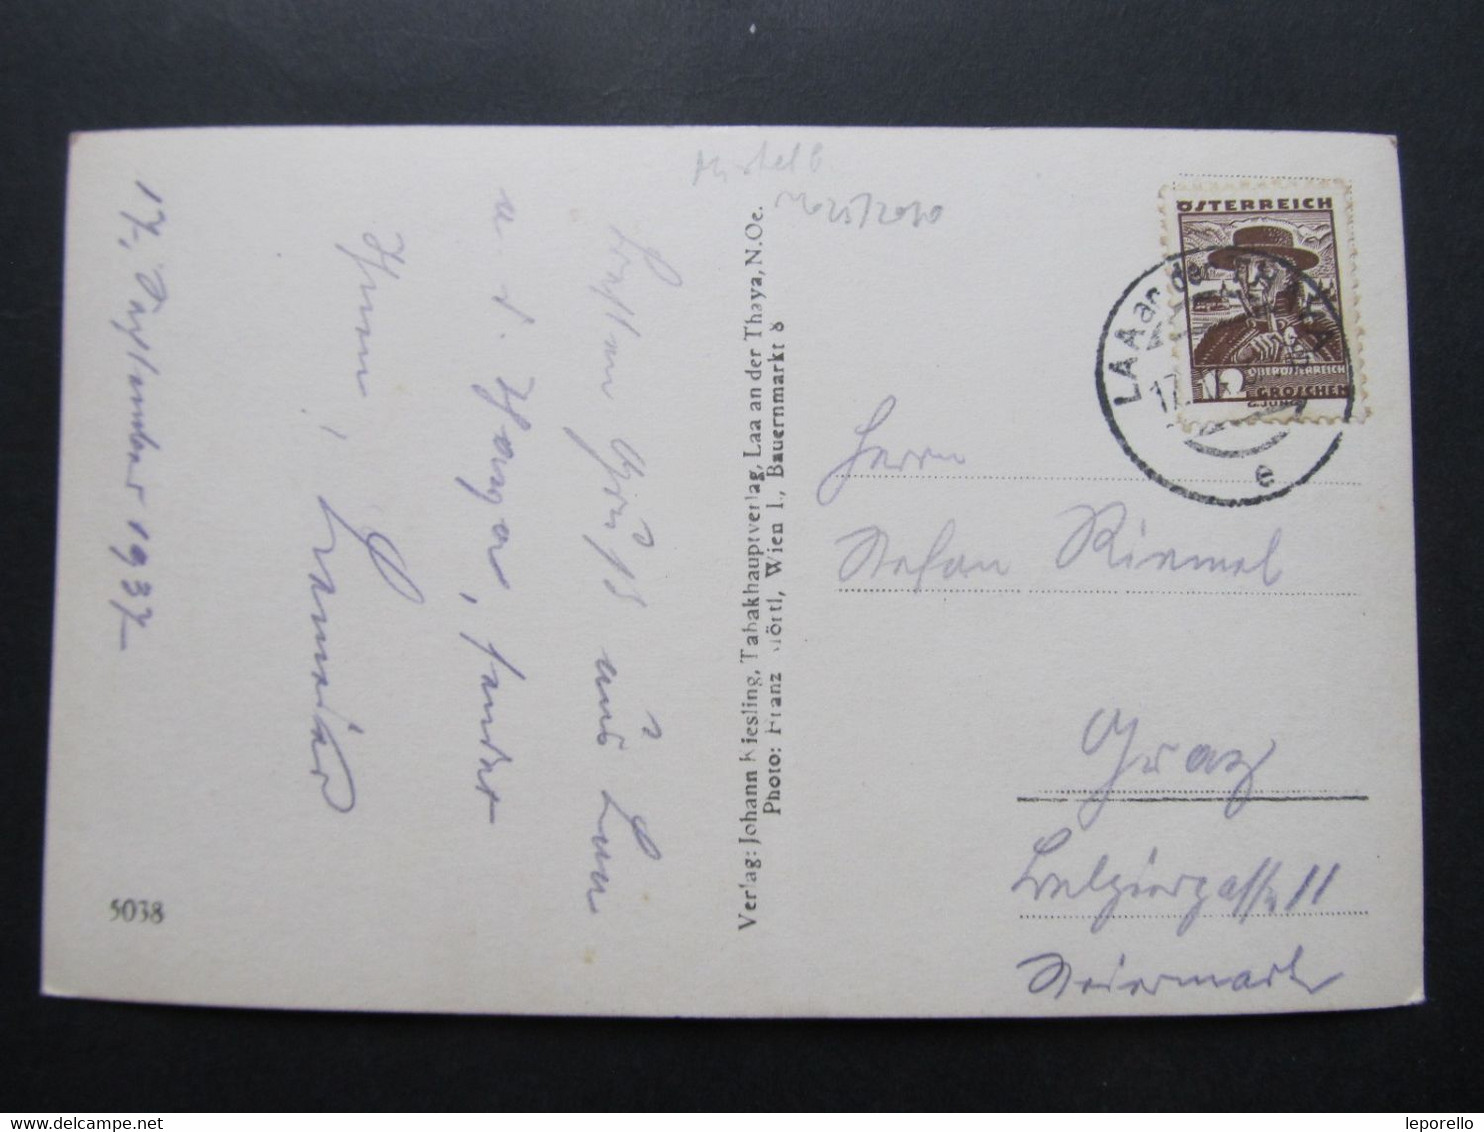 17. September 1937
Besten Grüße aus Laa
a. d. Thaya, sendet
Ihnen,
5038
Verlag: Johann Kiesling, Tabakhauptverlag, Laa an der Thaya, N.Oe.
Photo: Franz Möttl, Wien I., Bauernmarkt 8
ÖSTERREICH
12
OBERÖSTERREICH
GROSCHEN
LAA an der THAYA
17.
e
Herrn
Stefan Riemel
Graz
Belgiergasse 11
Steiermark
leporello